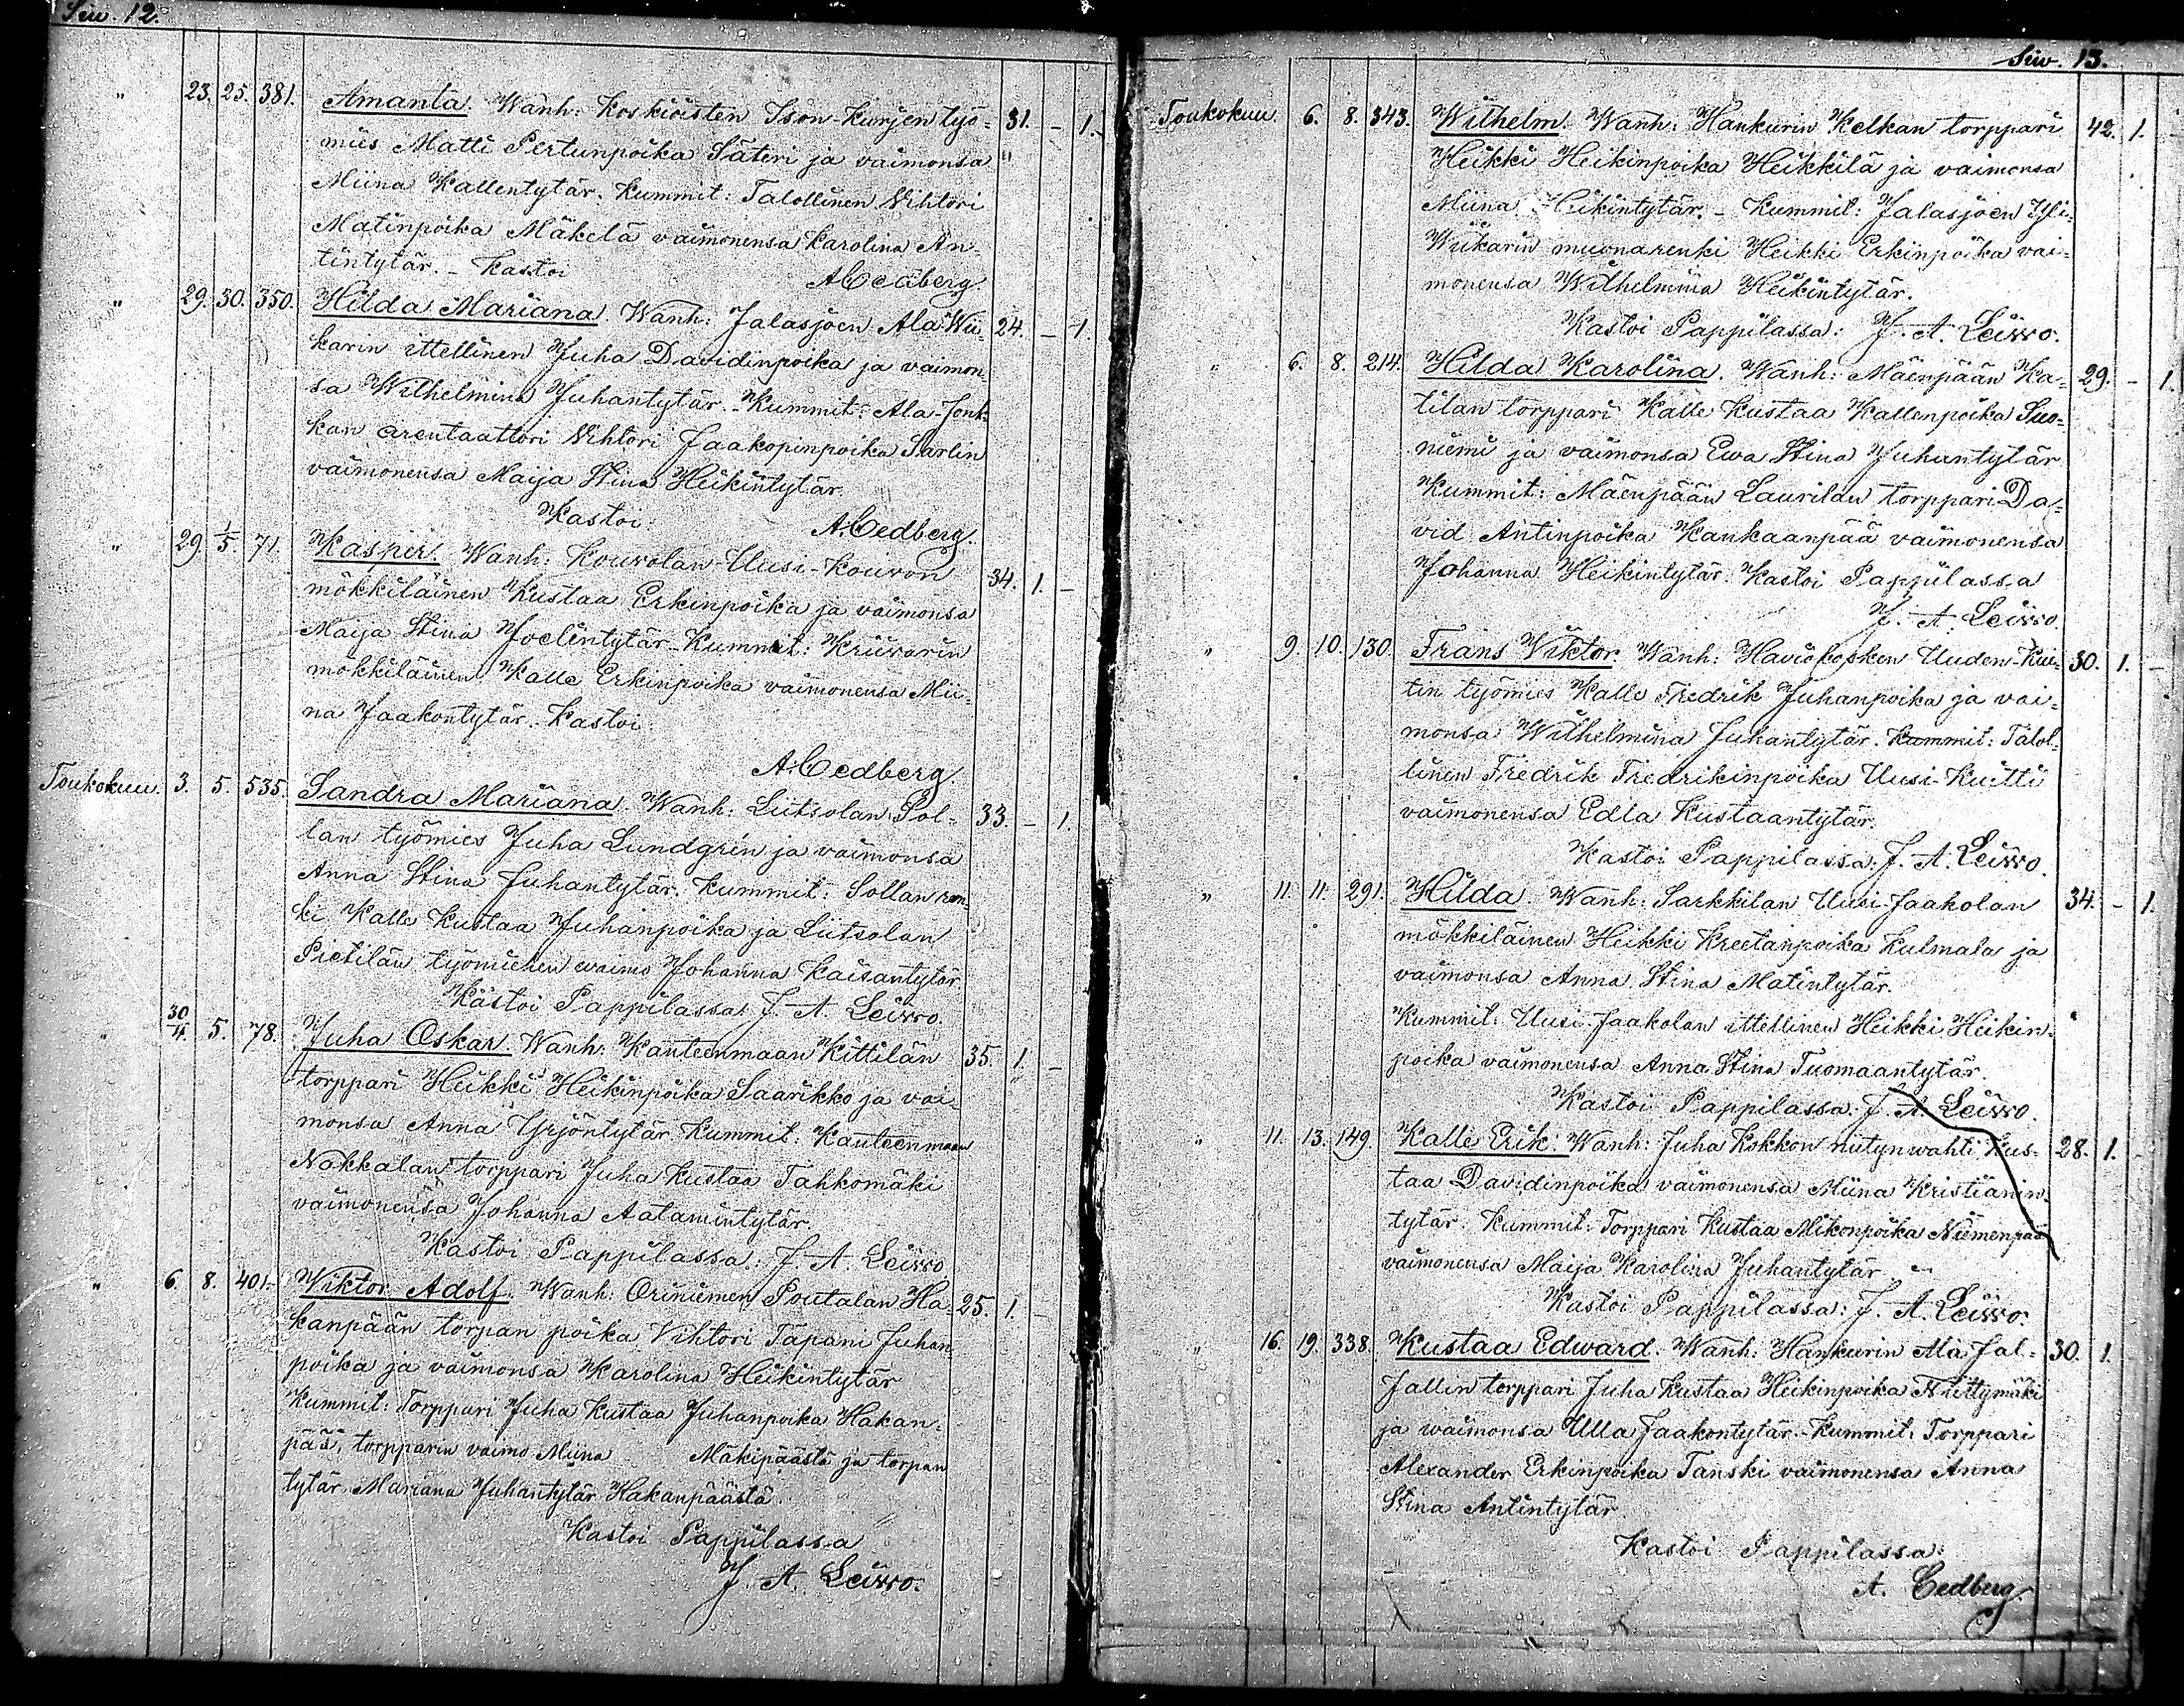 Siv. 12.
" 23. 25. 381. Amanta. Wanh: Koskioisten Ison-Kurjen työ- 31. - 1.
mies Matti Pertunpoika Säteri ja vaimonsa "
Miina Kallentytär. Kummit: Talollinen Vihtori
Matinpoika Mäkelä vaimonensa Karolina An-
tintytär. - Kastoi A Cedberg.
" 29. 30. 350. Hilda Mariana. Wanh: Jalasjoen Ala Wii- 24. - 1.
karin ittellinen Juha Davidinpoika ja vaimon-
sa Wilhelmina Juhantytär. - Kummit: Ala-Jonk-
kan arentaattori Vihtori Jaakopinpoika Sarlin
vaimonensa Maija Stina Heikintytär.
Kastoi: A. Cedberg.
" 29. 1/5. 71. Kasper. Wanh: Kouvolan-Uusi-Kouvon 34. 1. -
mökkiläinen Kustaa Erkinpoika ja vaimonsa
Maija Stina Joelintytär. Kummit: Kriivarin
mökkiläinen Kalle Erkinpoika vaimonensa Mii-
na Jaakontytär. Kastoi
A. Cedberg.
Toukokuu. 3. 5. 535. Sandra Mariana. Wanh: Liitsolan Sol- 33. - 1.
lan työmies Juha Lundgrén ja vaimonsa
Anna Stina Juhantytär. Kummit: Sollan ren-
ki Kalle Kustaa Juhanpoika ja Liitsolan
Pietilän työmiehen vaimo Johanna Kaisantytär
Kastoi Pappilassa: J. A. Leivo.
" 30/4. 5. 78. Juha Oskar. Wanh: Kanteenmaan Kittilän 35. 1. -
torppari Heikki Heikinpoika Saarikko ja vai-
monsa Anna Yrjöntytär. Kummit: Kanteenmaan
Nokkalan torppari Juha Kustaa Tahkomäki
vaimonensa Johanna Aatamintytär.
Kastoi Pappilassa: J. A. Leivo
" 6. 8. 401. Wiktor Adolf. Wanh: Oriniemen Poutalan Ha- 25. 1. -
kanpään torpan poika Vihtori Tapani Juhan
poika ja vaimonsa Karolina Heikintytär
Kummit: Torppari Juha Kustaa Juhanpoika Hakan-
pää, torpparin vaimo Miina Mäkipäästä ja torpan
tytär Mariana Juhantytär Hakanpäästä.
Kastoi Pappilassa
J. A. Leivo.
Siv. 13.
Toukokuu. 6. 8. 343. Wilhelm. Wanh: Hankurin Kelkan torppari 42. 1. -
Heikki Heikinpoika Heikkilä ja vaimonsa
Miina Heikintytär. - Kummit: Jalasjoen Yli-
Wiikarin muonarenki Heikki Erkinpoika vai-
monensa Wilhelmina Heikintytär.
Kastoi Pappilassa: J. A. Leivo.
" 6. 8. 214. Hilda Karolina. Wanh: Mäenpään Ka- 29. - 1.
tilan torppari Kalle Kustaa Kallenpoika Suo-
niemi ja vaimonsa Ewa Stina Juhantytär
Kummit: Mäenpään Laurilan torppari Da-
vid Antinpoika Kankaanpää vaimonensa
Johanna Heikintytär. Kastoi Pappilassa
J. A. Leivo.
" 9. 10. 130. Frans Viktor. Wanh: Haviokosken Uuden-Kui- 30. 1. -
tin työmies Kalle Fredrik Juhanpoika ja vai-
monsa Wilhelmina Juhantytär. Kummit: Talol-
linen Fredrik Fredrikinpoika Uusi-Kuitti
vaimonensa Edla Kustaantytär.
Kastoi Pappilassa: J. A. Leivo.
" 11. 11. 291. Hilda. Wanh: Sarkkilan Uusi-Jaakolan 34. - 1.
mökkiläinen Heikki Kreetanpoika Kulmala ja
vaimonsa Anna Stina Matintytär.
Kummit: Uusi-Jaakolan ittellinen Heikki Heikin-
poika vaimonensa Anna Stina Tuomaantytär.
Kastoi Pappilassa: J. A. Leivo.
" 11. 13. 149. Kalle Erik. Wanh: Juha Kokkon niitynwahti Kus- 28. 1.
taa Davidinpoika vaimonensa Miina Kristianin-
tytär. Kummit: Torppari Kustaa Mikonpoika Niemenpää
vaimonensa Maija Karolina Juhantytär
Kastoi Pappilassa: J. A. Leivo.
" 16. 19. 338. Kustaa Edward. Wanh: Hankurin Ala Jal- 30. 1.
Jallin torppari Juha Kustaa Heikinpoika Niittymäki
ja waimonsa Ulla Jaakontytär. - Kummit: Torppari
Alexander Erkinpoika Tanski vaimonensa Anna
Stina Antintytär.
Kastoi Pappilassa:
A. Cedberg.